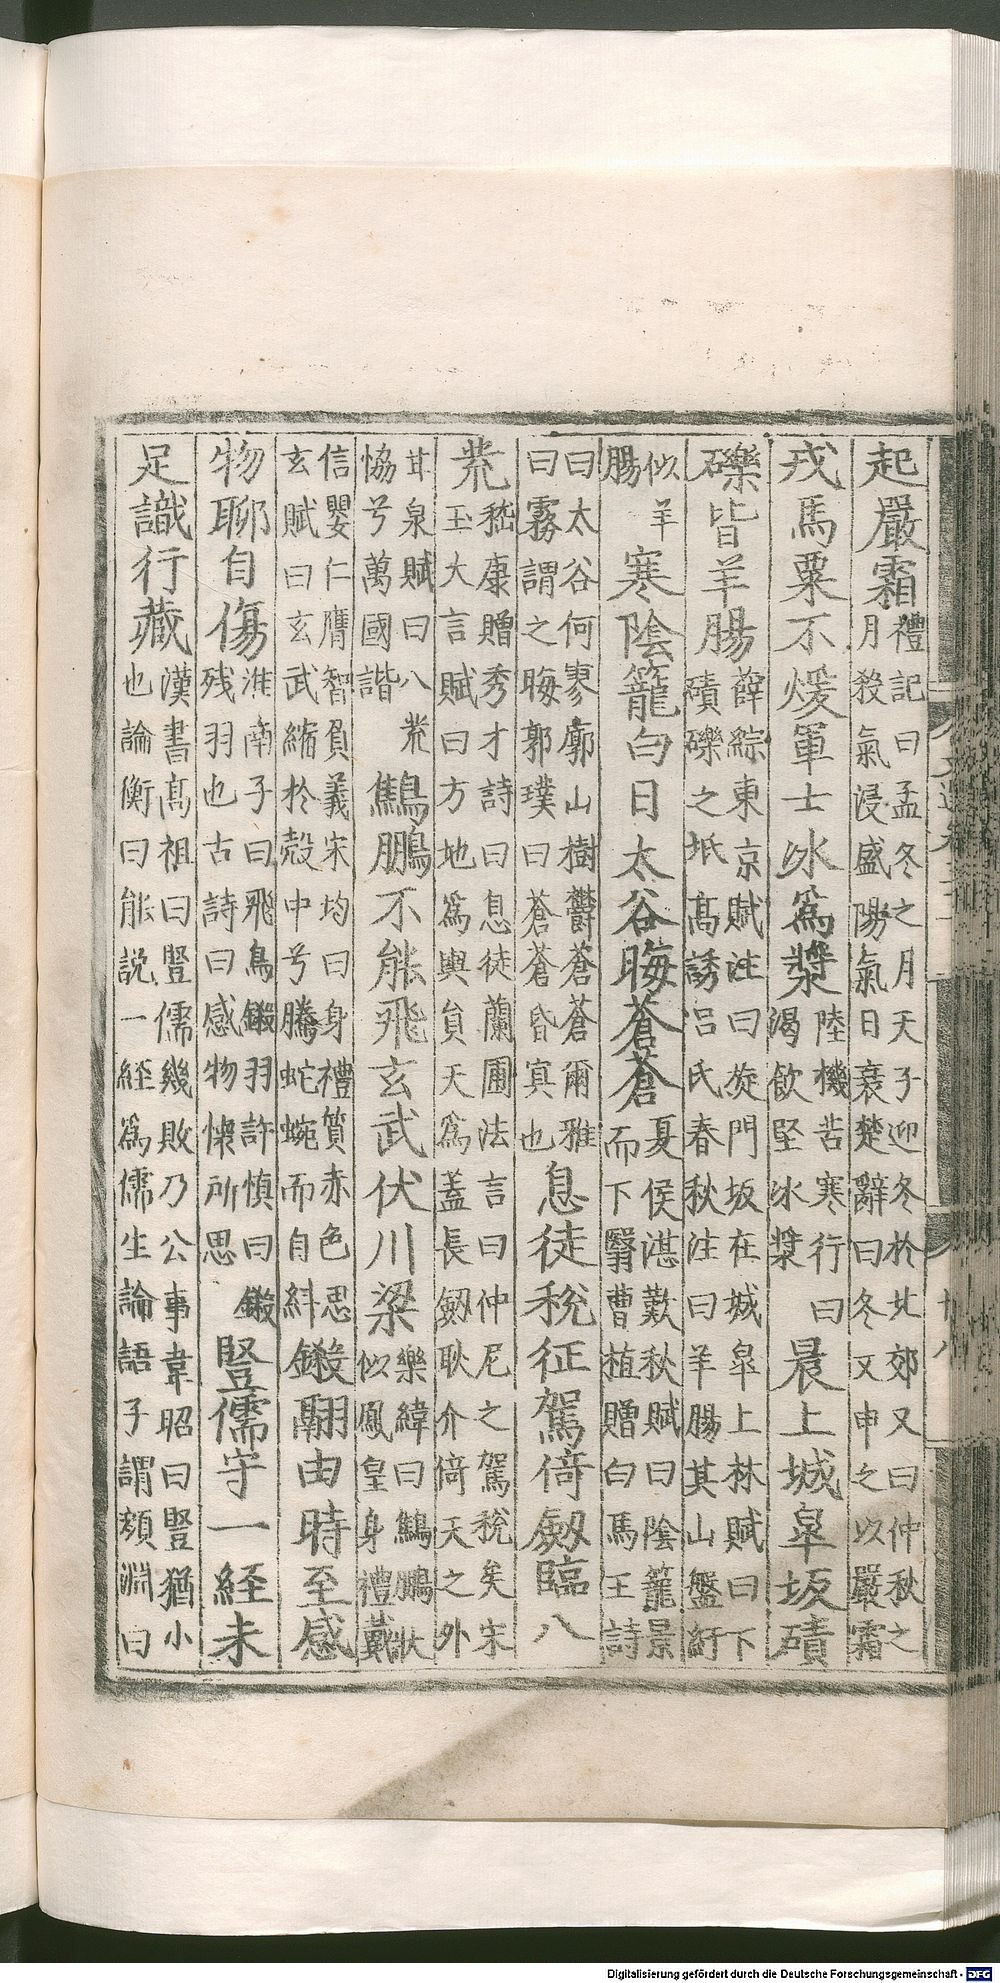 起嚴霜禮記曰孟冬之月天子迎冬於北郊又曰仲秋之
月殺氣浸盛陽氣日衰楚辭曰冬又申之以嚴霜
戎馬粟不煖軍士冰爲漿陸機苦寒行曰
渴飲堅冰漿晨上城皐坂磧
礫皆羊腸薛綜東京賦注曰旋門坂在城皐上林賦曰下
磧礫之坻高誘呂氏春秋注曰羊腸其山盤紆
似羊
腸寒陰籠白日太谷晦蒼蒼夏侯湛歎秋賦曰陰籠景
而下翳曹植贈白馬王詩
曰太谷何寥廓山樹鬱蒼蒼爾雅
曰霧謂之晦郭璞曰蒼蒼昏冥也息徒稅征駕倚劔臨八
荒嵇康贈秀才詩曰息徒蘭圃法言曰仲尼之駕稅矣宋
玉大言賦曰方地爲輿貟天爲蓋長劔耿介倚天之外
甘泉賦曰八荒
恊兮萬國諧鷦鵬不能飛玄武伏川梁樂緯曰鷦鵬狀
似鳳皇身禮戴
信嬰仁膺智負義宋均曰身禮質赤色思
玄賦曰玄武縮於殼中兮騰蛇蜿而自糾鎩翮由時至感
物聊自傷淮南子曰飛鳥鎩羽許慎曰鎩
殘羽也古詩曰感物懷所思豎儒守一経未
足識行藏漢書高祖曰豎儒幾敗乃公事韋昭曰豎猶小
也論衡曰能説一経爲儒生論語子謂頬淵曰
十八
Digitalisierung gefördert durch die Deutsche Forschungsgemeinschaft - DFG